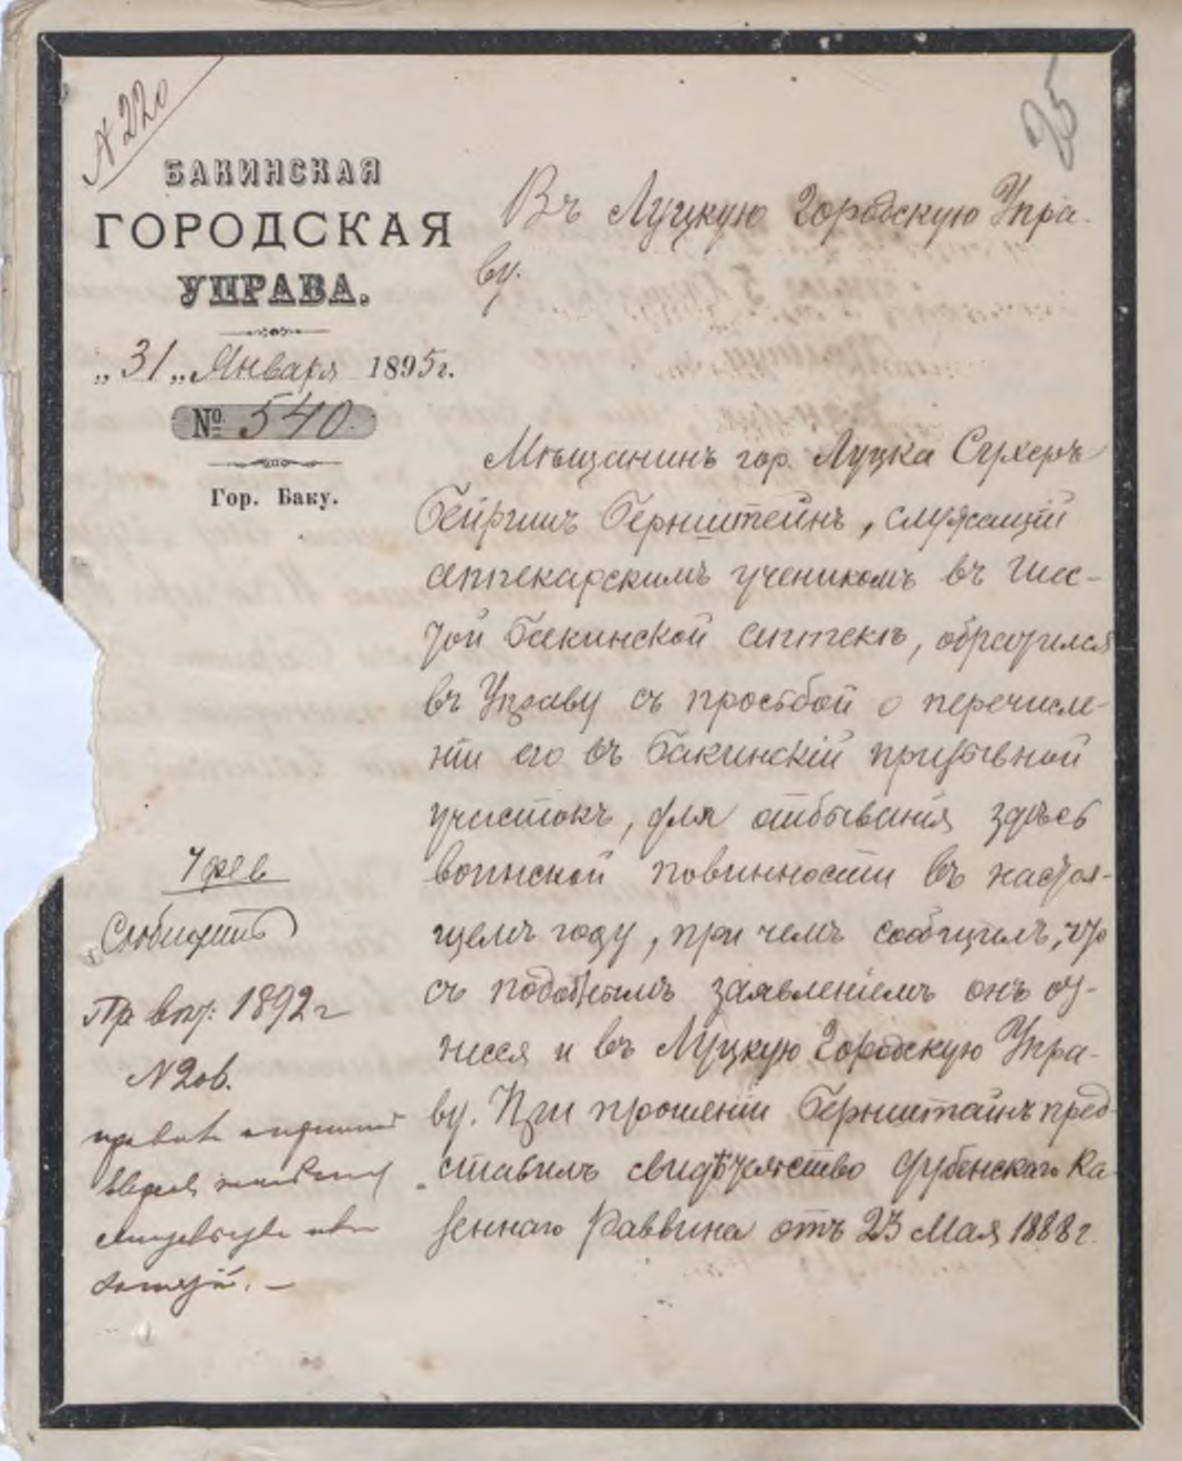 N 220
25
БАКИНСКАЯ
ГОРОДСКАЯ
УПРАВА.
„31„ Января 1895 г.
№ 540.
Гор. Баку.
Въ Луцкую Городскую Упра-
ву.
Мѣщанинъ гор. Луцка Сухеръ
Бейришъ Бернштейнъ, служащій
аптекарскимъ ученикомъ въ Шес-
той Бакинской аптекѣ, обратился
въ Управу съ просьбой о перечисле-
ніи его въ Бакинскій призывной
участокъ, для отбыванія здѣсь
воинской повинности въ настоя-
щемъ году, при чемъ сообщилъ, что
съ подобнымъ заявленіемъ онъ от-
несся и въ Луцкую Городскую Упра-
ву. При прошеніи Бернштейнъ пред-
ставилъ свидѣтельство Дубенскаго Ка-
зеннаго Раввина отъ 23 Мая 1888 г.
7 фев
Сообщить
Пр 1892 г
N 206.